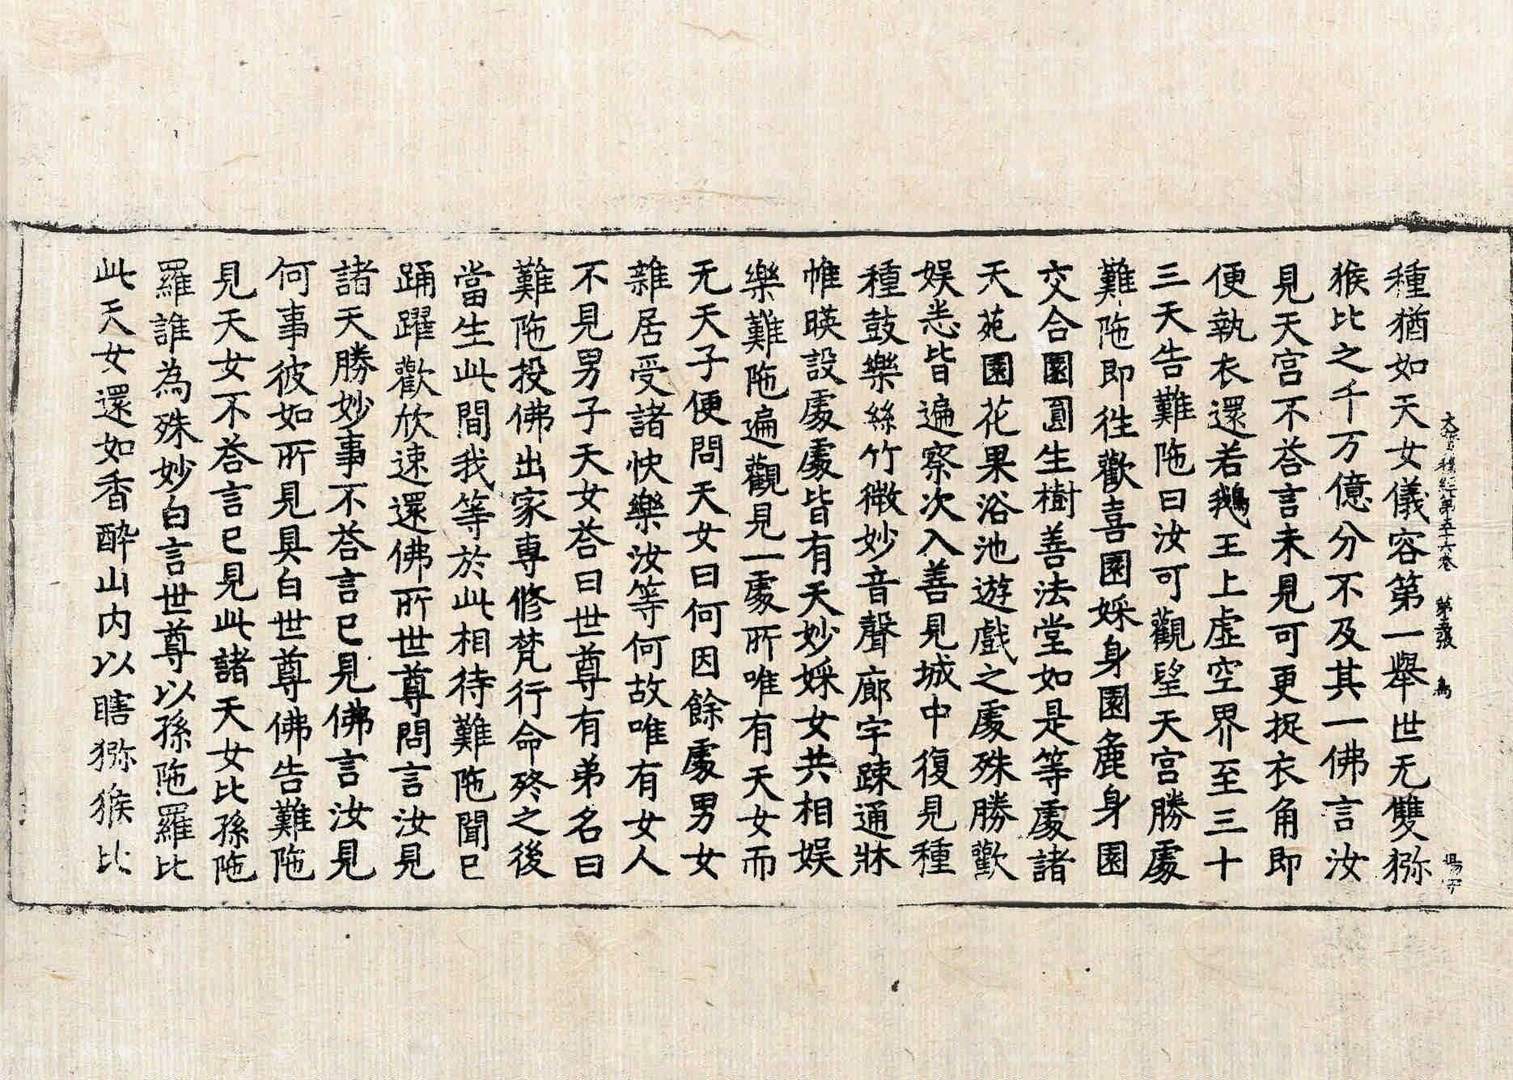 大寶積經第五十六卷 第五張 鳥
種猶如天女儀容第一舉世无雙猕
猴比之千万億分不及其一佛言汝
見天宮不荅言未見可更捉衣角即
便執衣還若鵝王上虛空界至三十
三天告難陁曰汝可觀望天宮勝處
難陁即徃歡喜園婇身園麁身園
交合園圎生樹善法堂如是等處諸
天苑園花果浴池遊戲之處殊勝歡
娱悉皆遍察次入善見城中復見種
種鼓樂絲竹微妙音聲廊宇踈通牀
帷暎設處處皆有天妙婇女共相娱
樂難陁遍觀見一處所唯有天女而
无天子便問天女曰何因餘處男女
雜居受諸快樂汝等何故唯有女人
不見男子天女荅曰世尊有弟名曰
難陁投佛出家專修梵行命終之後
當生此間我等於此相待難陁聞已
踊躍歡欣速還佛所世尊問言汝見
諸天勝妙事不荅言已見佛言汝見
何事彼如所見具白世尊佛告難陁
見天女不荅言已見此諸天女比孫陁
羅誰為殊妙白言世尊以孫陁羅比
此天女還如香醉山内以瞎猕猴比